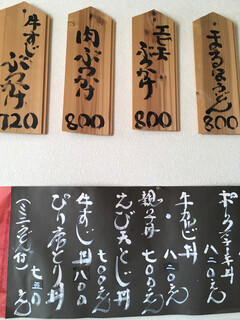 まるほうどん
800
エビ天ぶっかけ
800
肉ぶっかけ
800
牛すじぶっかけ
720
八二〇えん
牛カルビ丼
八二〇えん
親子丼
七〇〇えん
えび天とじ丼
牛すじ丼 八〇〇
ぴり辛とり丼
(ミニうどん付) 七五〇えん